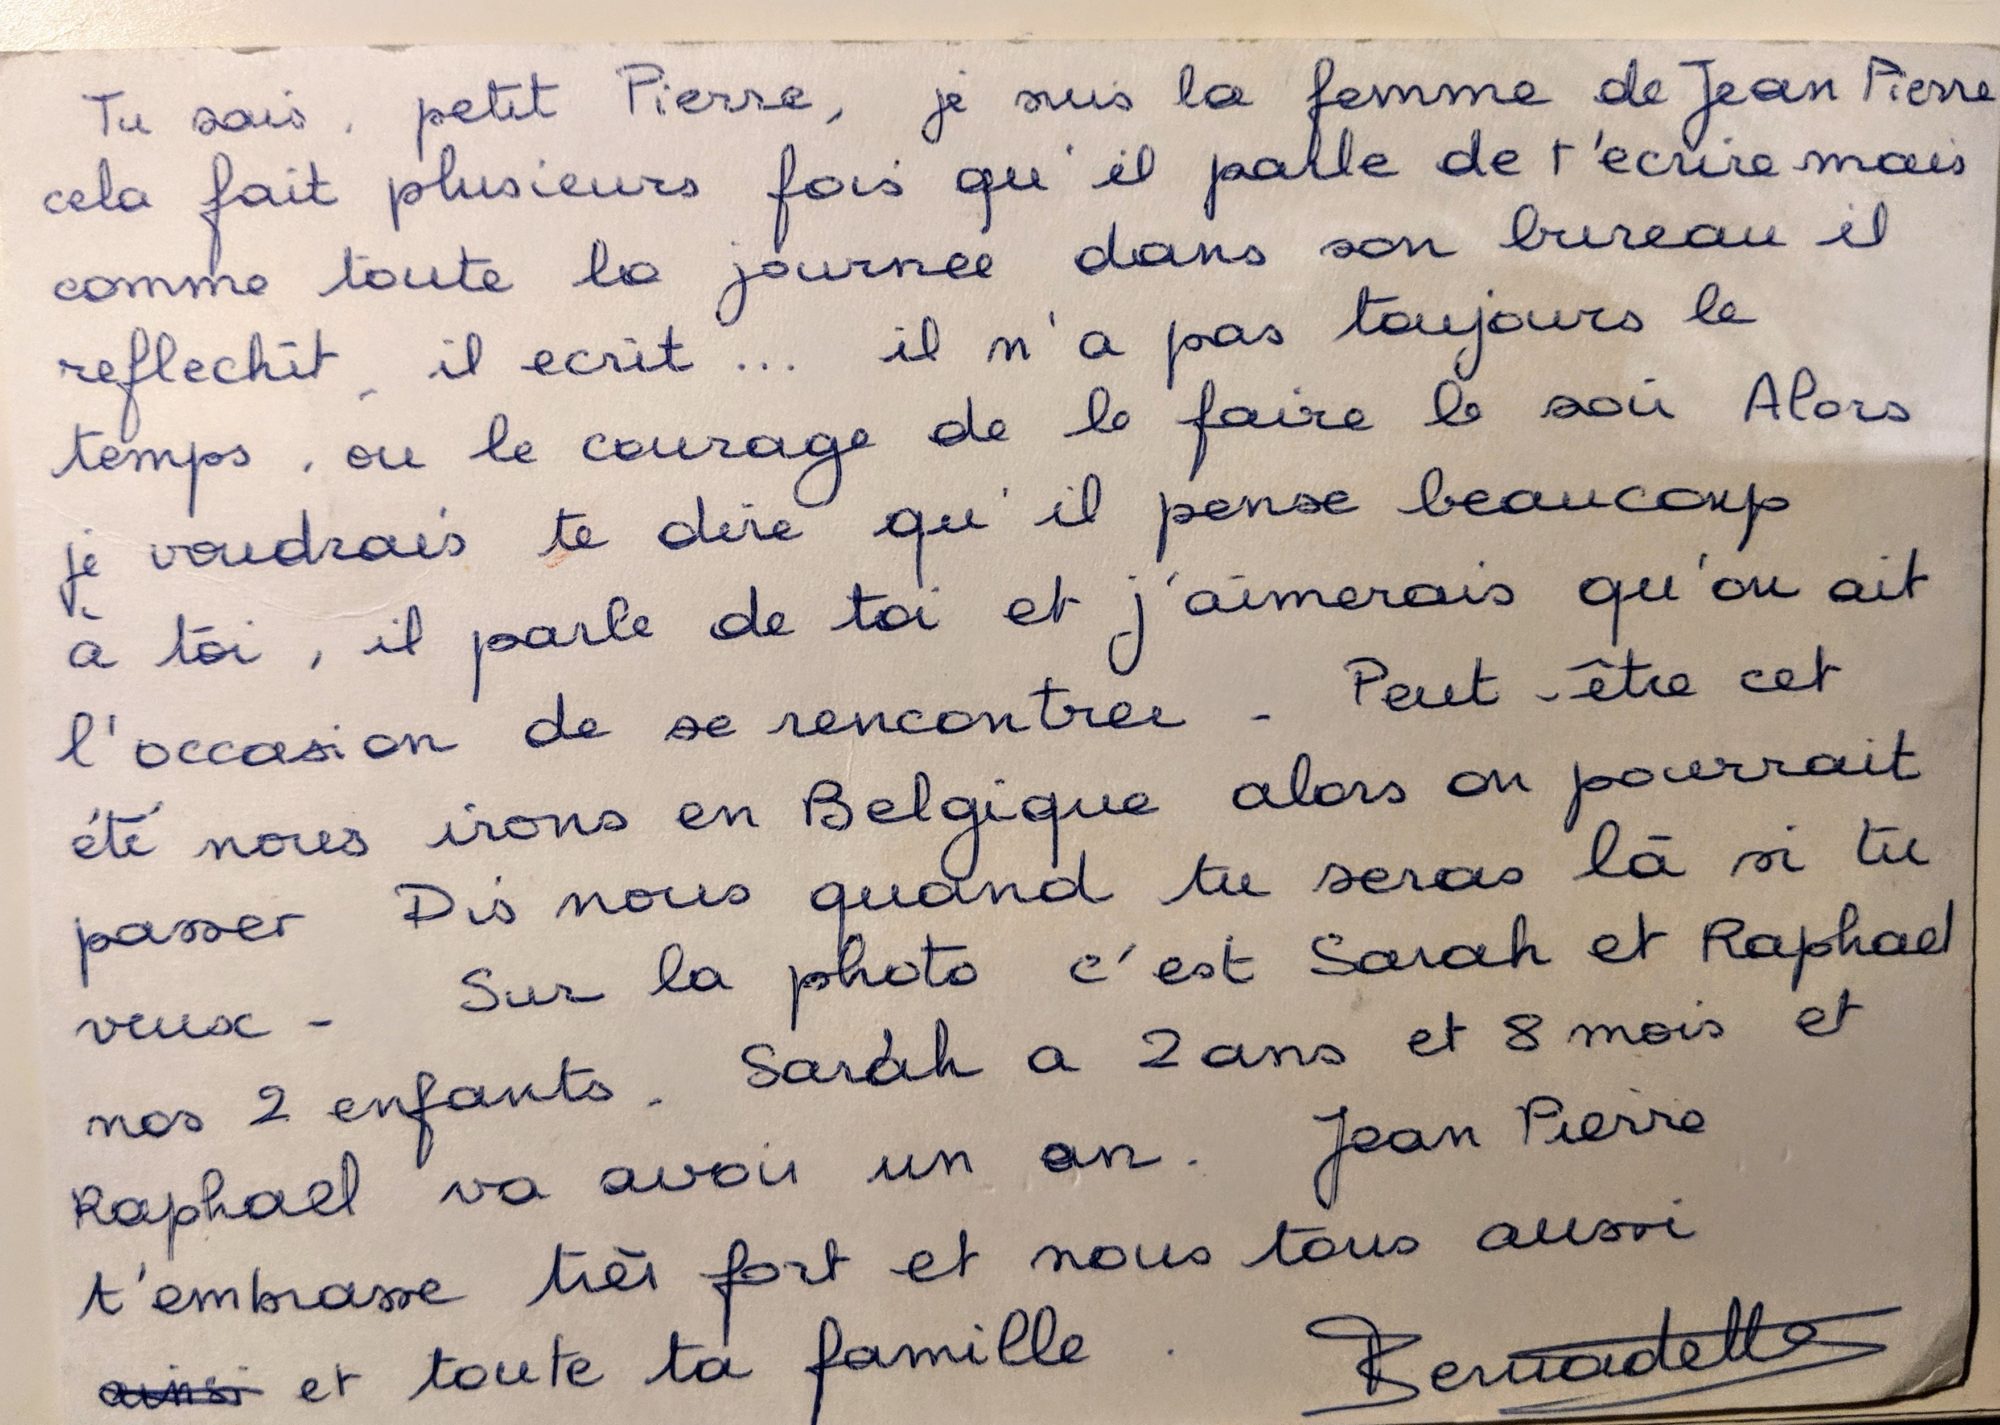 Tu sais, petit Pierre, je suis la femme de Jean Pierre
cela fait plusieurs fois qu'il parle de t'ecrire mais
comme toute la journée dans son bureau il
reflechit, il ecrit... il n'a pas toujours le
temps, ou le courage de le faire le soir Alors
je voudrais te dire qu'il pense beaucoup
à toi, il parle de toi et j'aimerais qu'on ait
l'occasion de se rencontrer - Peut-être cet
été nous irons en Belgique alors on pourrait
passer Dis nous quand tu seras là si tu
veux - Sur la photo c'est Sarah et Raphael
nos 2 enfants. Sarah a 2 ans et 8 mois et
Raphael va avoir un an. Jean Pierre
t'embrasse très fort et nous tous aussi
ainsi et toute ta famille. Bernadette